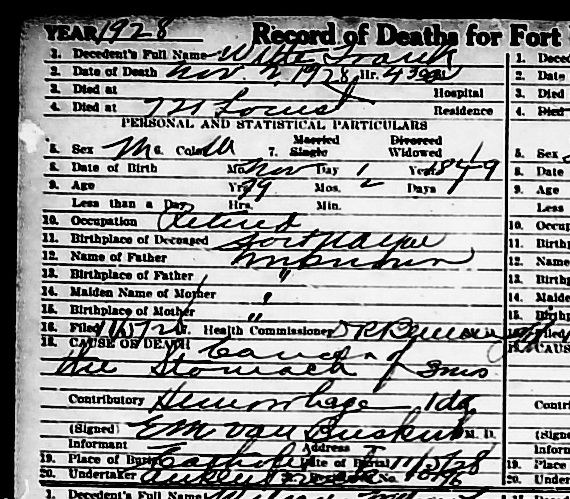 YEAR 1928 Record of Deaths for Fort
1. Decedent's Full Name Witte Frank
2. Date of Death Nov. 2, 1928 Hr. 430
3. Died at Hospital
4. Died at 721 Locust Residence
PERSONAL AND STATISTICAL PARTICULARS
5. Sex M 6. Color W 7. Married Single Divorced Widowed
8. Date of Birth Mo. Nov Day 1 Year 1849
9. Age Yrs. 79 Mos. Days
Less than a Day Hrs. Min.
10. Occupation Retired
11. Birthplace of Deceased Fort Wayne
12. Name of Father Unknown
13. Birthplace of Father "
14. Maiden Name of Mother "
15. Birthplace of Mother "
16. Filed 11/5/28 17. Health Commissioner
18. CAUSE OF DEATH Cancer of
the Stomach 3 mos
Contributory Hemorrhage 1 da
(Signed) E M Van Buskirk M. D.
Informant Address
19. Place of Burial Catholic Date of Burial 11/5/28
20. Undertaker No.
1. Decedent's Full Name
1. Deced
2. Date
3. Died
4. Died
5. Sex
8. Date
9. Age
Less
10. Occup
11. Birth
12. Name
13. Birthp
14. Maide
15. Birthp
Filed
CAUS
Contri
(Signe
Inform
19. Place
20. Under